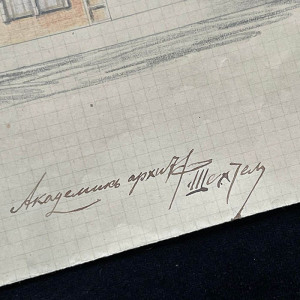 Академикъ архит Ф Шехтель